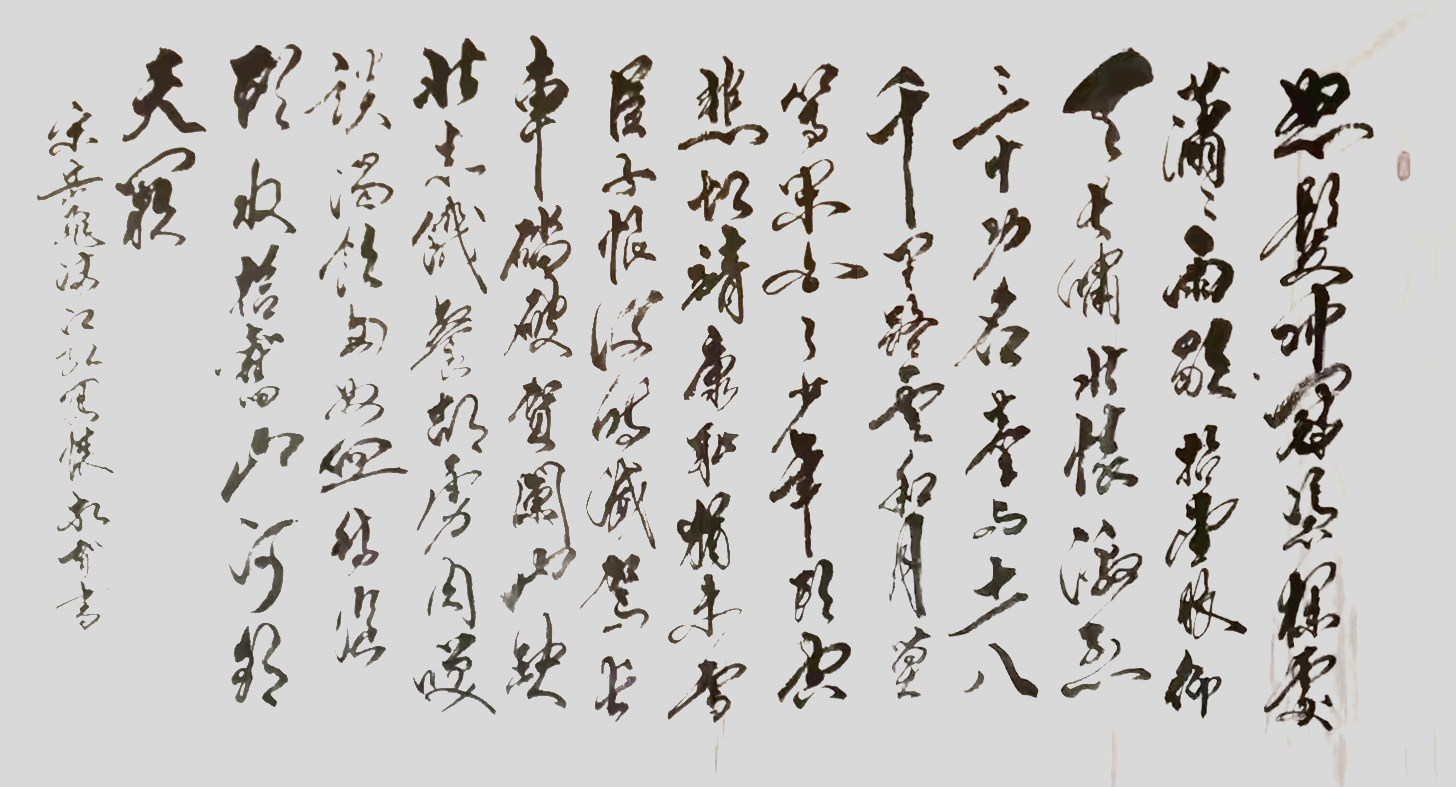 怒髮冲冠憑欄處
瀟々雨歇抬望眼仰
天長嘯壯懷激烈
三十功名塵与土八
千里路雲和月莫
等閑白了少年頭空
悲切靖康耻猶未雪
臣子恨何時滅駕長
車踏破賀蘭山缺
壯志饑餐胡虜肉笑
談渴飲匈奴血待從
頭收拾舊山河朝
天闕
宋岳飛满江红寫懷 書